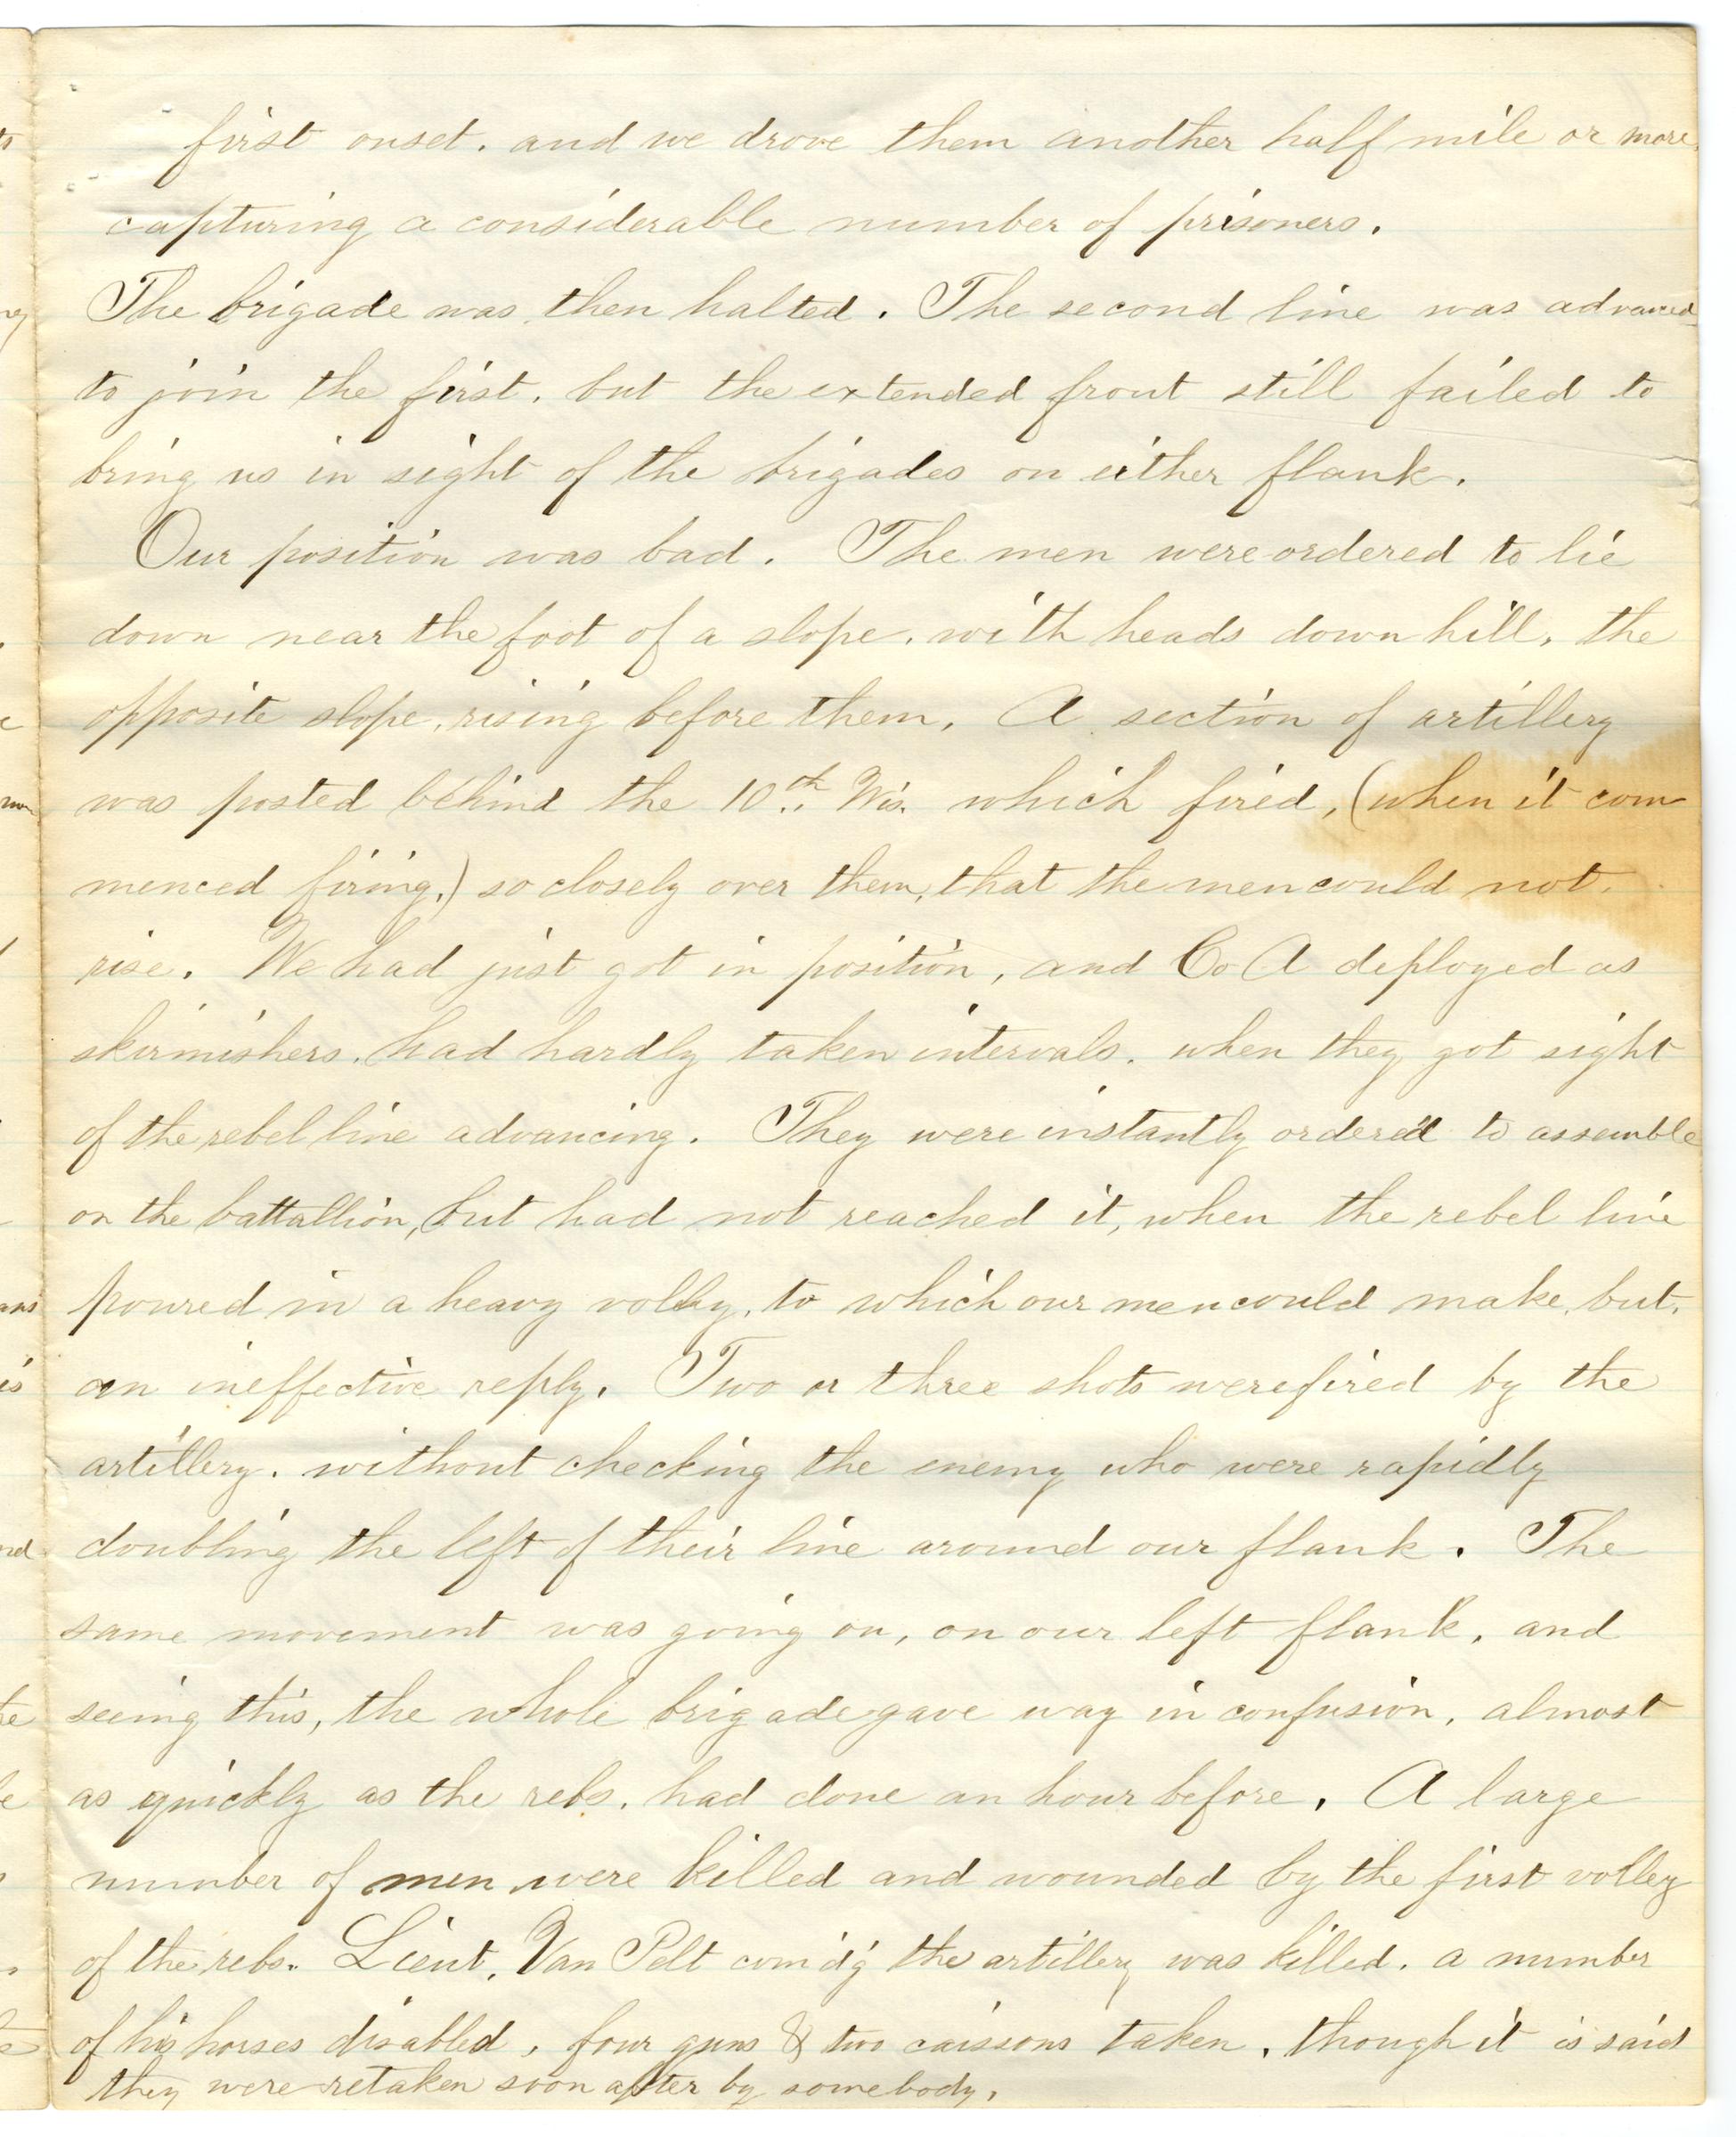 first onset. and we drove them another half mile or more,
capturing a considerable number of prisoners.
The brigade was then halted. The second line was advanced
to join the first, but the extended front still failed to
bring us in sight of the brigades on either flank.
Our position was bad. The men were ordered to lie
down near the foot of a slope, with heads down hill, the
opposite slope, rising before them. A section of artillery
was posted behind the 10th Wis. which fired, (when it com
menced firing,) so closely over them, that the men could not
rise. We had just got in position, and Co A deployed as
skirmishers, had hardly taken intervals, when they got sight
of the rebel line advancing. They were instantly ordered to assemble
on the battallion, but had not reached it, when the rebel line
poured in a heavy volley, to which our men could make, but,
an ineffective reply. Two or three shots were fired by the
artillery, without checking the enemy who were rapidly
doubling the left of their line around our flank. The
same movement was going on, on our left flank, and
seeing this, the whole brigade gave way in confusion, almost
as quickly as the rebs. had done an hour before. A large
number of men were killed and wounded by the first volley
of the rebs. Lieut. Van Pelt com'd'g the artillery was killed, a number
of his horses disabled, four guns & two caissons taken, though it is said
they were retaken soon after by somebody.